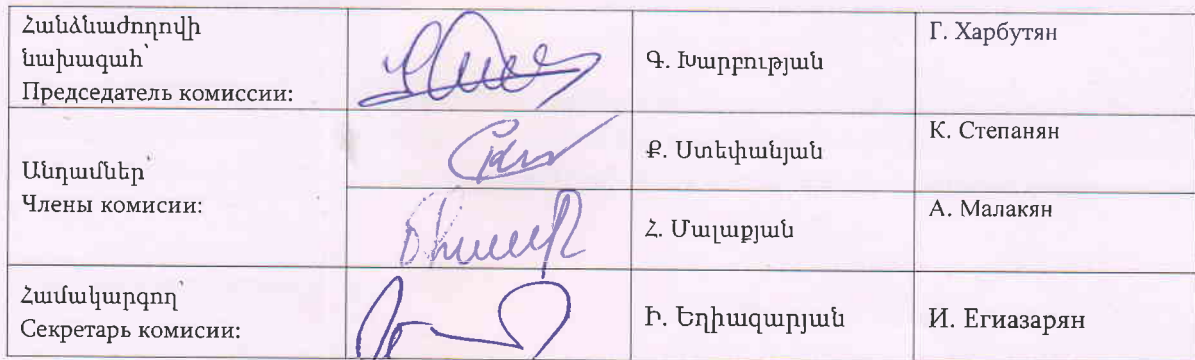 Հանձնաժողովի
նախագահ՝
Председатель комиссии:
Գ. Խարբության
Г. Харбутян
Անդամներ՝
Члены комисии:
Ք. Ստեփանյան
К. Степанян
Հ. Մալաքյան
А. Малакян
Համակարգող՝
Секретарь комисии:
Ի. Եղիազարյան
И. Егиазарян